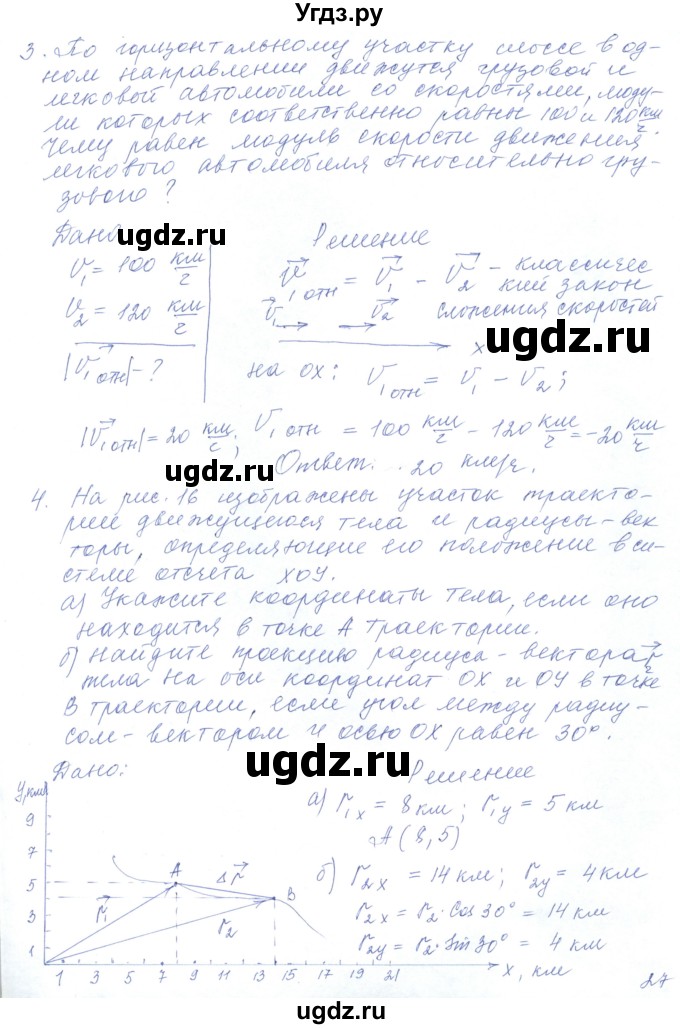 Угдз.ру
3. По горизонтальному участку шоссе в од-
ном направлении движутся грузовой и
легковый автомобили со скоростями, моду-
ли которых соответственно равны 100 и 120 км/ч
Чему равен модуль скорости движения
легкового автомобиля относительно гру-
зового?
Дано: Решение
ugdz.ru ugdz.ru
V₁ = 100 км/ч
V₂ = 120 км/ч
|V⃗₁отн| - ?
V⃗₁отн = V⃗₁ - V⃗₂ - классичес
кий закон
сложения скоростей
V⃗₁ V⃗₂
x
ugdz.ru
на ох: V₁отн = V₁ - V₂;
|V⃗₁отн| = 20 км/ч; V₁отн = 100 км/ч - 120 км/ч = -20 км/ч
ugdz.ru
Ответ: 20 км/ч.
4. На рис. 16 изображены участок траекто-
рии движущегося тела и радиусы-век-
торы, определяющие его положение в си-
стеме отсчета XOY.
ugdz.ru
а) Укажите координаты тела, если оно
находится в точке А траектории.
ugdz.ru
б) Найдите проекцию радиуса-вектора r⃗₂
тела на оси координат OX и OY в точке
В траектории, если угол между радиу-
сом-вектором и осью OX равен 30°.
ugdz.ru ugdz.ru
Дано: Решение
а) r₁x = 8 км; r₁y = 5 км
A (8,5)
б) r₂x = 14 км; r₂y = 4 км
r₂x = r₂·cos 30° = 14 км
r₂y = r₂·sin 30° = 4 км
y, км
9
7
5
3
1
A Δr⃗ B
r⃗₁ r₂
1 3 5 7 9 11 13 15 17 19 21 x, км
27
ugdz.ru
ugdz.ru